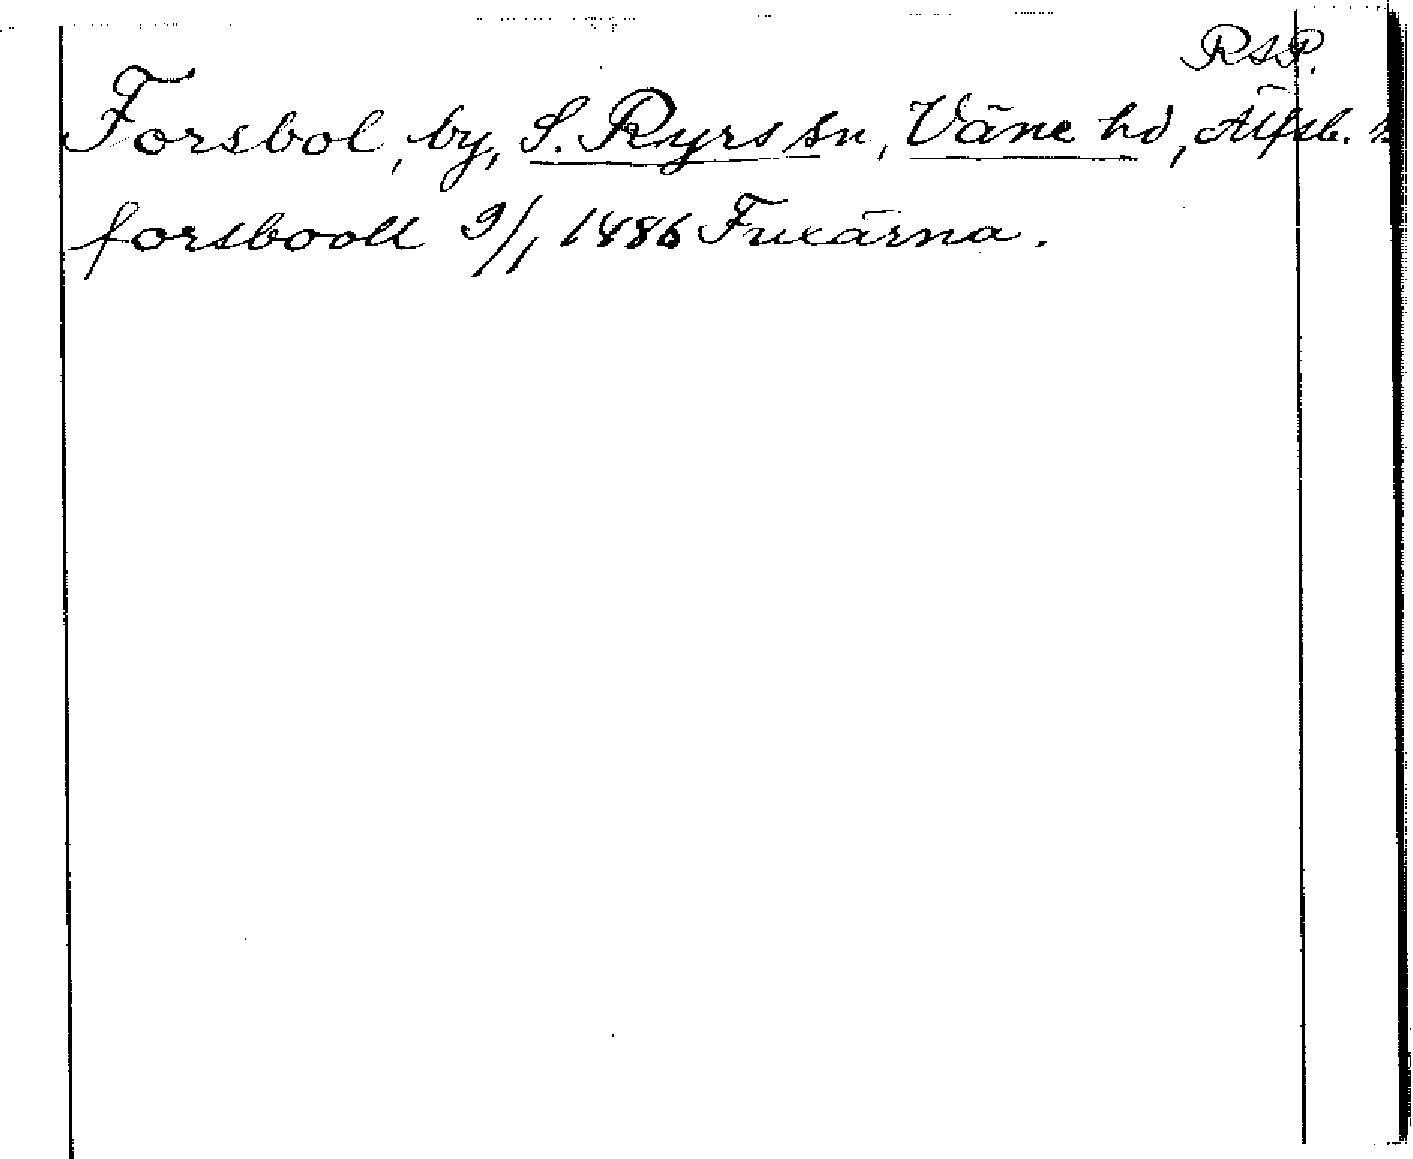 RSP.
Forsbol, by, S. Ryrs sn, Väne hd, Älfsb.
forsboall 9/1 1486 Fuxärna.